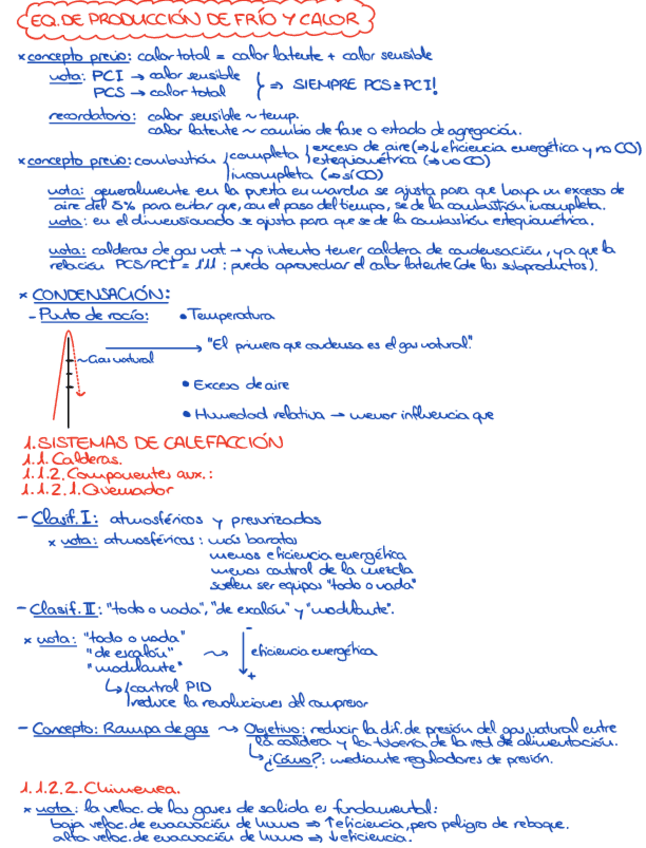 EQ. DE PRODUCCIÓN DE FRÍO Y CALOR
× concepto previo: calor total = calor latente + calor sensible
nota: PCI → calor sensible
PCS → calor total } ⇒ SIEMPRE PCS≥PCI!
recordatorio: calor sensible ~ temp.
calor latente ~ cambio de fase o estado de agregación.
× concepto previo: combustión
completa
exceso de aire (⇒↓eficiencia energética y no CO)
estequiométrica (⇒ no CO)
incompleta (⇒ sí CO)
nota: generalmente en la puesta en marcha se ajusta para que haya un exceso de
aire del 5% para evitar que, con el paso del tiempo, se dé la combustión incompleta.
nota: en el dimensionado se ajusta para que se de la combustión estequiométrica.
nota: calderas de gas nat → yo intento tener caldera de condensación, ya que la
relación PCS/PCI = 1'11 : puedo aprovechar el calor latente (de los subproductos).
× CONDENSACIÓN:
- Punto de rocío: • Temperatura
~Gas natural → "El primero que condensa es el gas natural".
• Exceso de aire
• Humedad relativa → menor influencia que
1. SISTEMAS DE CALEFACCIÓN
1.1. Calderas.
1.1.2. Componentes aux.:
1.1.2.1. Quemador
- Clasif. I: atmosféricos y presurizados
× nota: atmosféricos: más baratos
menos eficiencia energética
menos control de la mezcla
suelen ser equipos "todo o nada"
- Clasif. II: "todo o nada", "de escalón" y "modulante".
× nota: "todo o nada"
"de escalón" ⤳ - ↓ + eficiencia energética
"modulante"
↳ control PID
reduce la revoluciones del compresor
- Concepto: Rampa de gas ⤳ Objetivo: reducir la dif. de presión del gas natural entre
la caldera y la tubería de la red de alimentación.
↳ ¿Cómo?: mediante reguladores de presión.
1.1.2.2. Chimenea.
× nota: la veloc. de los gases de salida es fundamental:
baja veloc. de evacuación de humo ⇒ ↑eficiencia, pero peligro de reboque.
alta veloc. de evacuación de humo ⇒ ↓eficiencia.